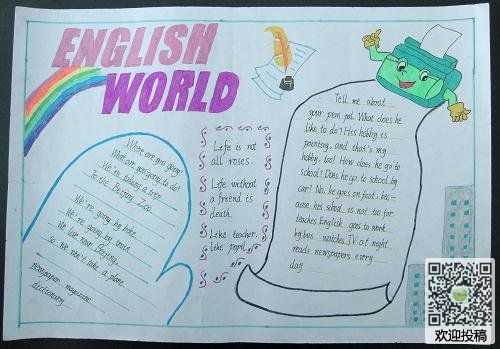 ENGLISH
WORLD
Where are you going?
What are you going to do?
We're taking a trip
To the Beijing Zoo
We're going by bike.
We're going by train.
We live near Beijing.
So we won't take a plane.
newspaper magazine
dictionary
Life is not
all roses.
Life without
a friend is
death.
Like teacher.
Like pupil.
Tell me about
your pen pal. What does he
like to do? His hobby is
painting, and that's my
hobby, too! How does he go to
school? Does he go to school by
car? No. he goes on foot, bec-
ause his school is not too far.
teaches English goes to work
by bus watches TV at night
reads newspapers every
day
欢迎投稿